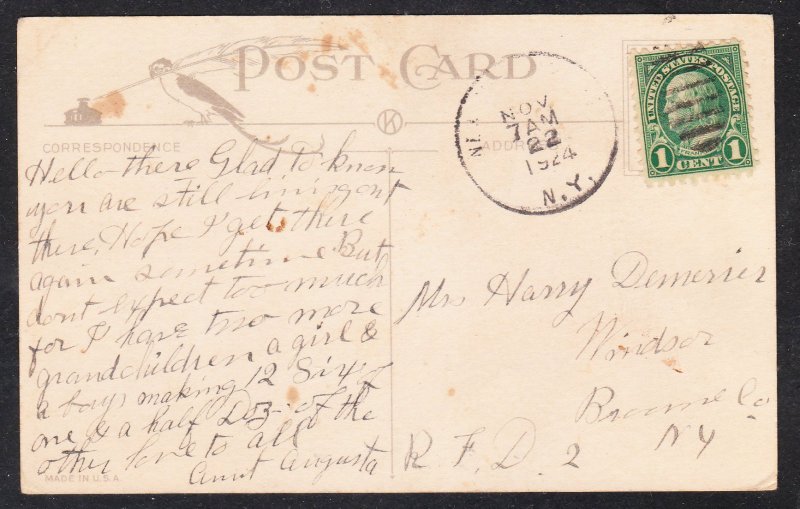 POST CARD
CORRESPONDENCE
ADDR
NOV
7 AM
22
1924
N.Y.
UNITED STATES POSTAGE
1 CENT 1
K
Hello there Glad to know
you are still living out
there. Hope I get there
again sometime But
dont expect too much
for I have two more
grandchildren a girl &
a boy making 12 Six of
one & a half Doz- of the
other love to all
Aunt Augusta
Mrs Harry Demerier
Windsor
Broome Co
NY
R. F. D. 2
MADE IN U.S.A.